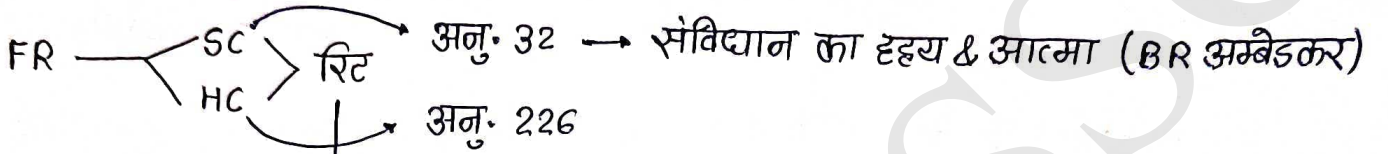 FR — SC > रिट अनु. 32 → संविधान का हृदय & आत्मा (BR अम्बेडकर)
HC अनु. 226